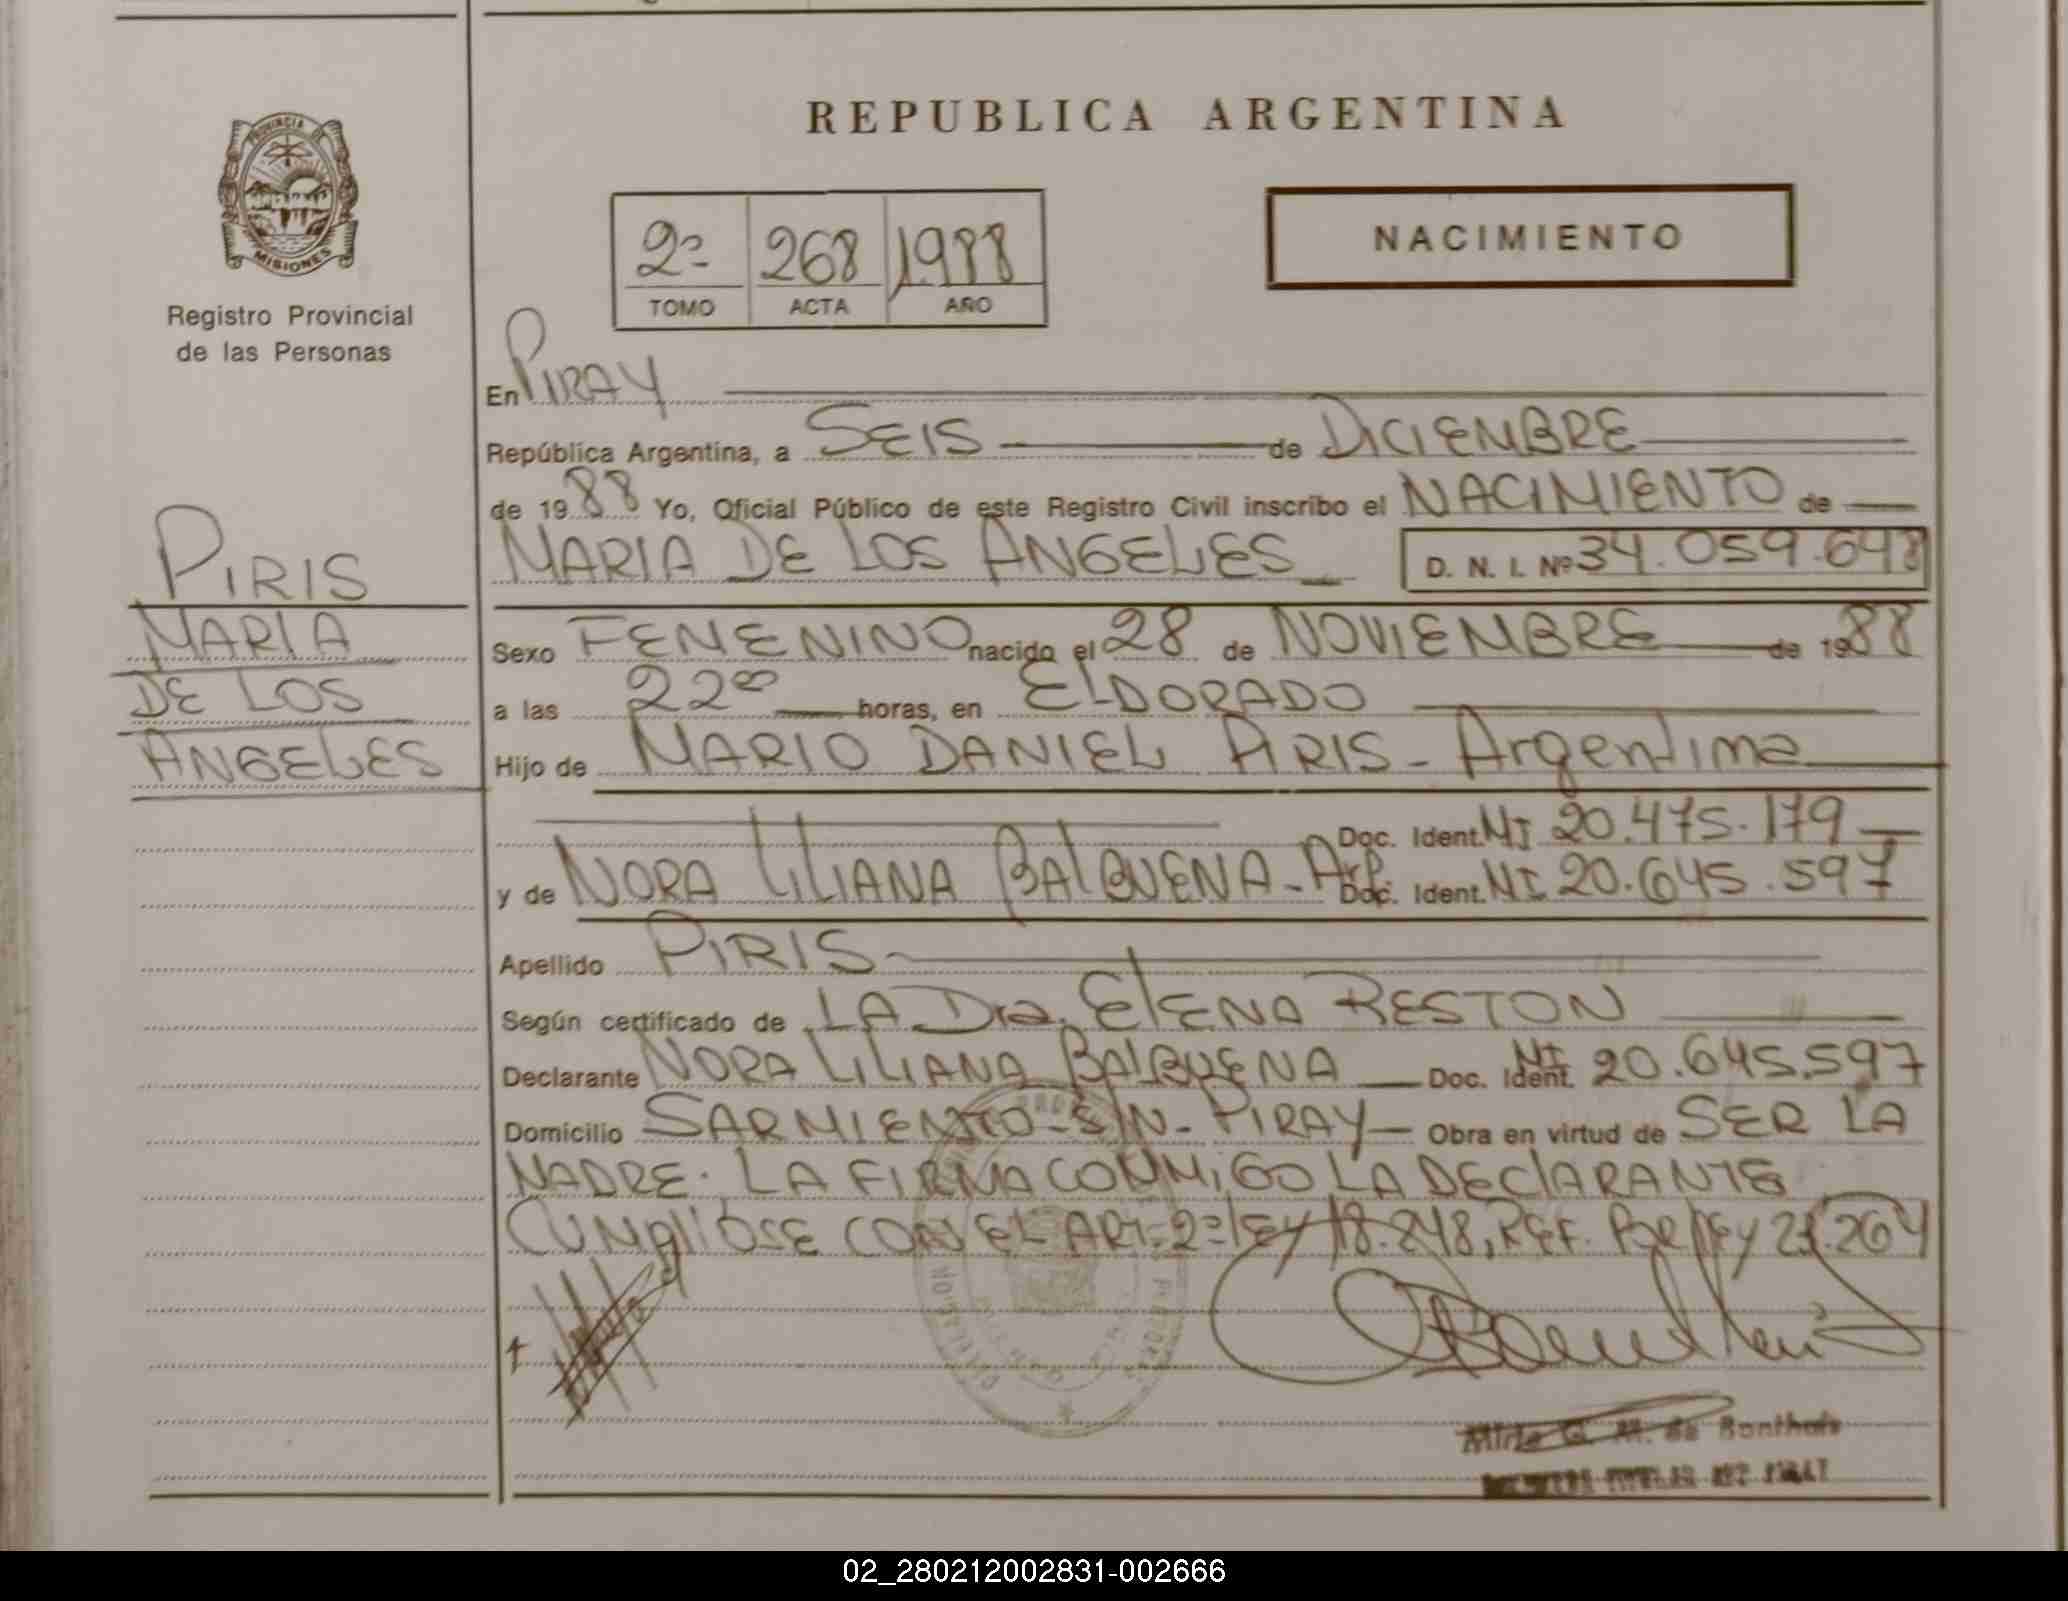 PROVINCIA DE
MISIONES
Registro Provincial
de las Personas
REPUBLICA ARGENTINA
2º 268 1988
TOMO ACTA AÑO
NACIMIENTO
En PIRAY
República Argentina, a SEIS de DICIEMBRE
de 1988 Yo, Oficial Público de este Registro Civil inscribo el NACIMIENTO de
MARIA DE LOS ANGELES D. N. I. Nº 34.059.648
PIRIS
MARIA
DE LOS
ANGELES
Sexo FEMENINO nacido el 28 de NOVIEMBRE de 1988
a las 22ºº horas, en ELDORADO
Hijo de MARIO DANIEL PIRIS - Argentina
Doc. Ident. MI 20.475.179
y de NORA LILIANA BALBUENA - Arg. Doc. Ident. MI 20.645.597
Apellido PIRIS
Según certificado de LA Dra. ELENA RESTON
Declarante NORA LILIANA BALBUENA Doc. Ident. MI 20.645.597
Domicilio SARMIENTO - S/N - PIRAY Obra en virtud de SER LA
MADRE. LA FIRMA CONMIGO LA DECLARANTE
CUMPLIOSE CON EL ART= 2º LEY 18.248, REF. POR LEY 23.264
de Bonthuis
02_280212002831-002666